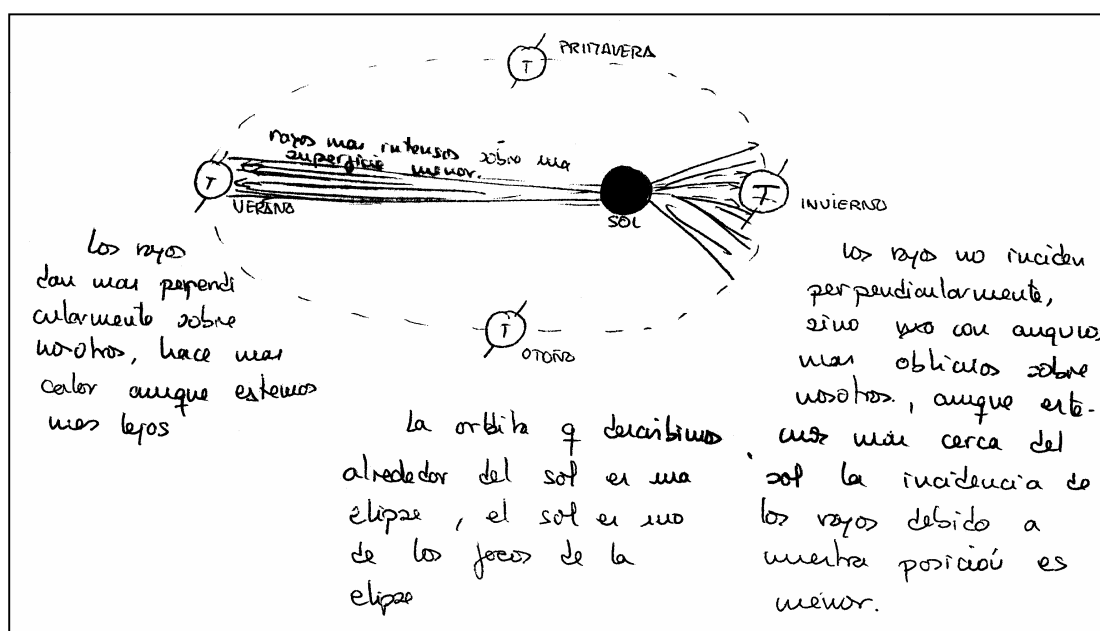 PRIMAVERA
T
rayos mas intensos sobre una
superficie menor.
T
VERANO
SOL
T
INVIERNO
T
OTOÑO
Los rayos
dan mas perpendi
cularmente sobre
nosotros, hace mas
calor aunque estemos
mas lejos
La orbita q describimos
alrededor del sol es una
elipse, el sol es uno
de los focos de la
elipse
Los rayos no inciden
perpendicularmente,
sino con angulos
mas oblicuos sobre
nosotros., aunque este-
mos más cerca del
sol la incidencia de
los rayos debido a
nuestra posición es
menor.